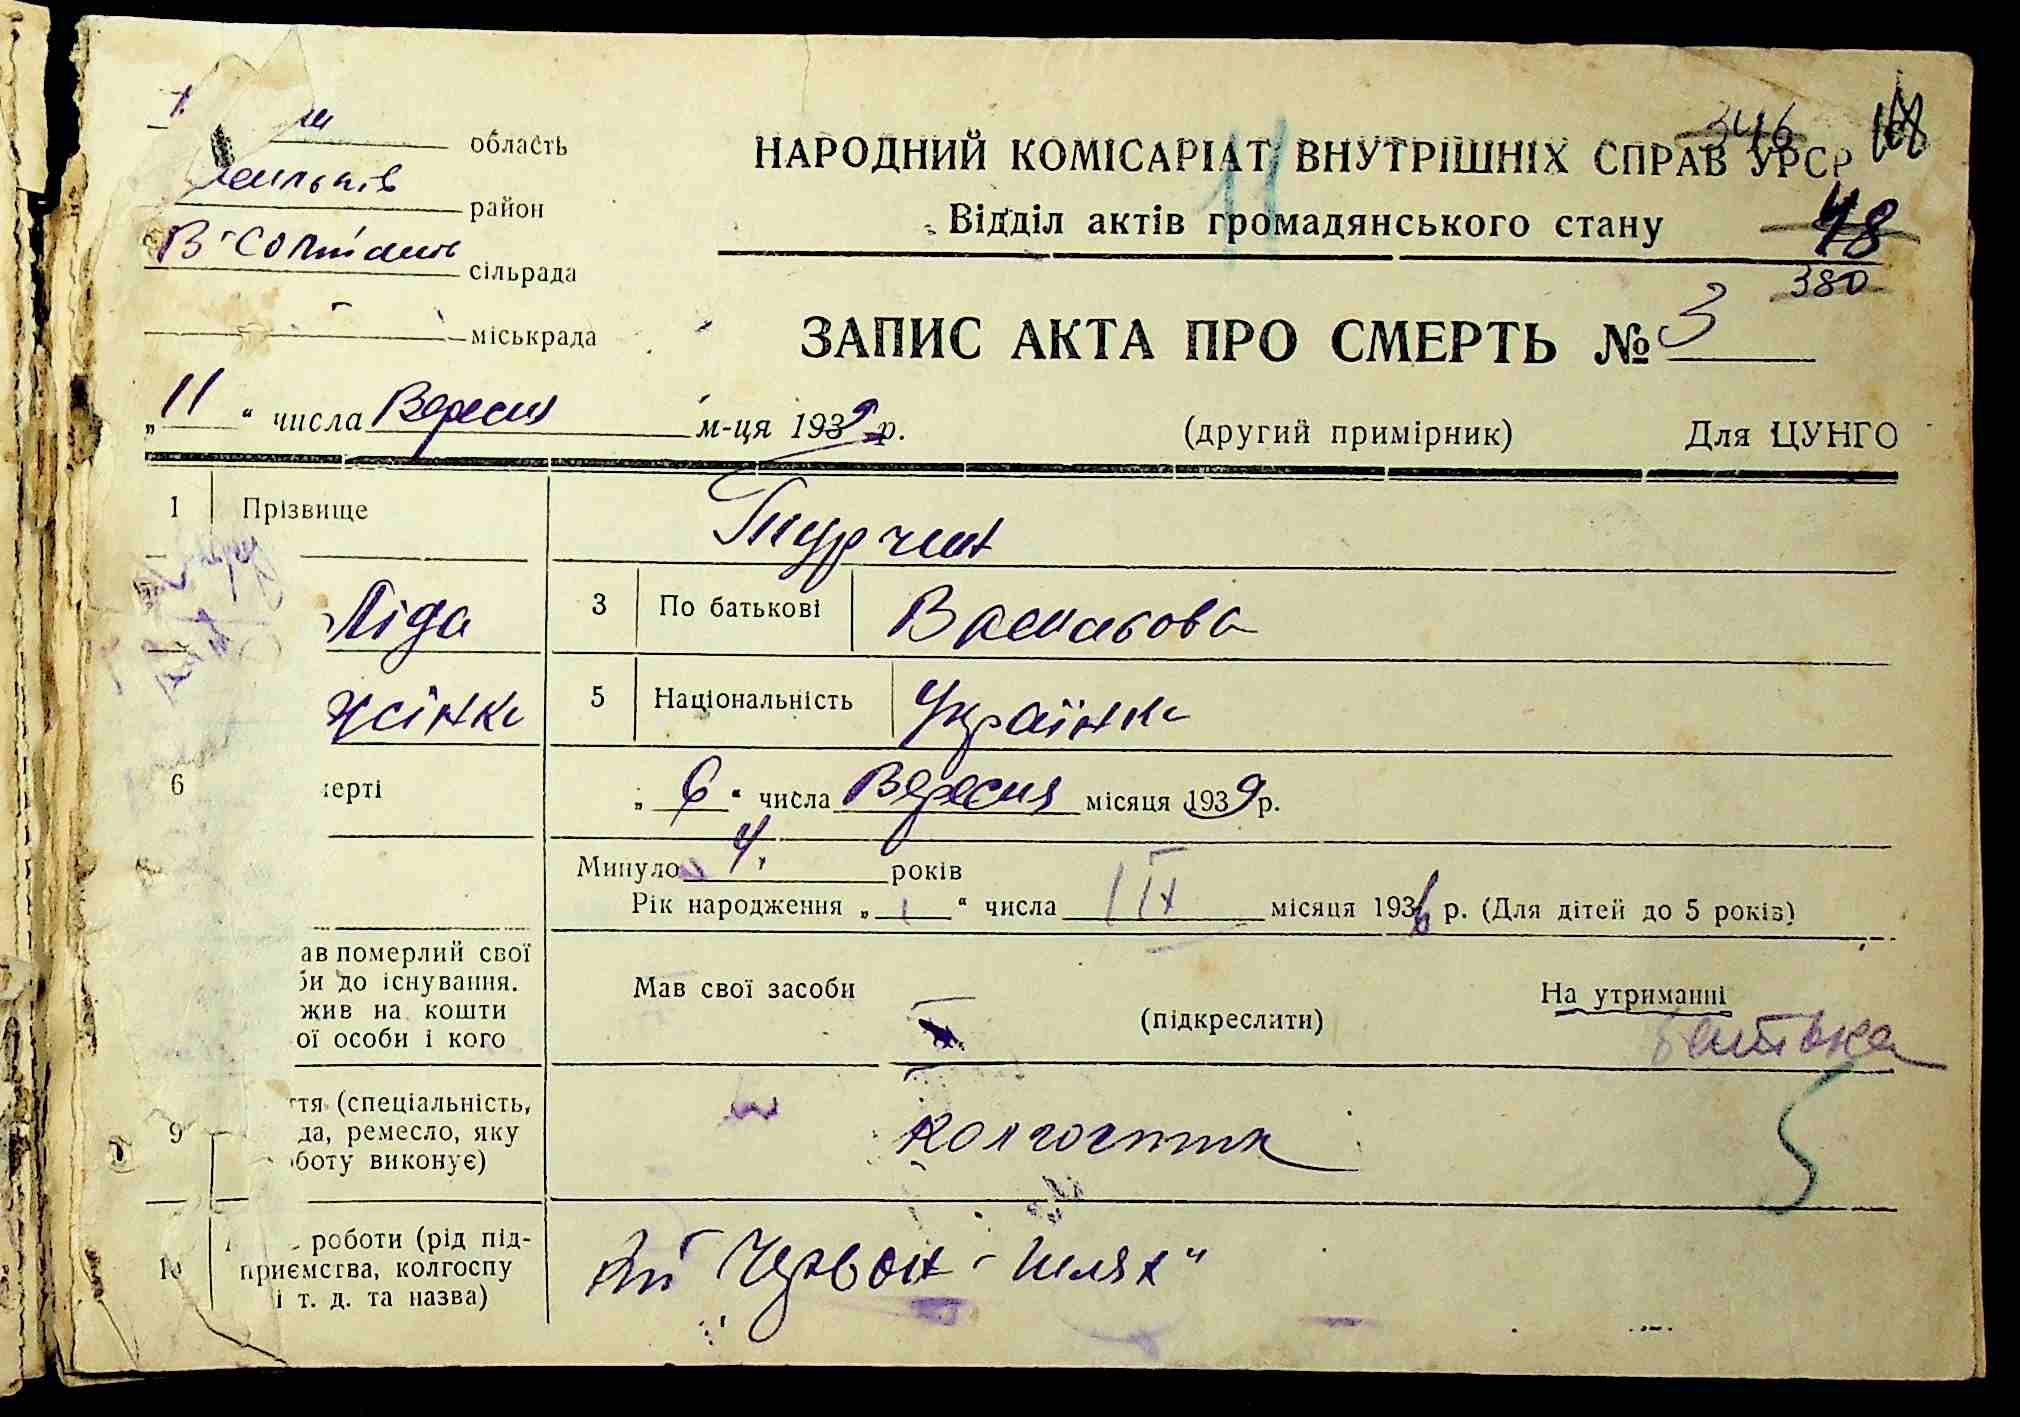 область
район
В-Солтанів
сільрада
міськрада
НАРОДНИЙ КОМІСАРІАТ ВНУТРІШНІХ СПРАВ УРСР
Відділ актів громадянського стану
346
168
48
380
11
ЗАПИС АКТА ПРО СМЕРТЬ № 3
„11“ числа Вересня м-ця 1939 р.
(другий примірник) Для ЦУНГО
1 Прізвище Турчин
Ліда 3 По батькові Васильовна
жінка 5 Національність Українка
6 мерті „6“ числа Вересня місяця 1939 р.
Минуло 4 років
Рік народження „ “ числа IX місяця 1936 р. (Для дітей до 5 років)
ав померлий свої
би до існування.
жив на кошти
ої особи і кого
Мав свої засоби (підкреслити) На утриманні
батька
9 ття (спеціальність,
да, ремесло, яку
боту виконує)
колгоспник
5
10 роботи (рід під-
приємства, колгоспу
і т. д. та назва)
Червон-Шлях"